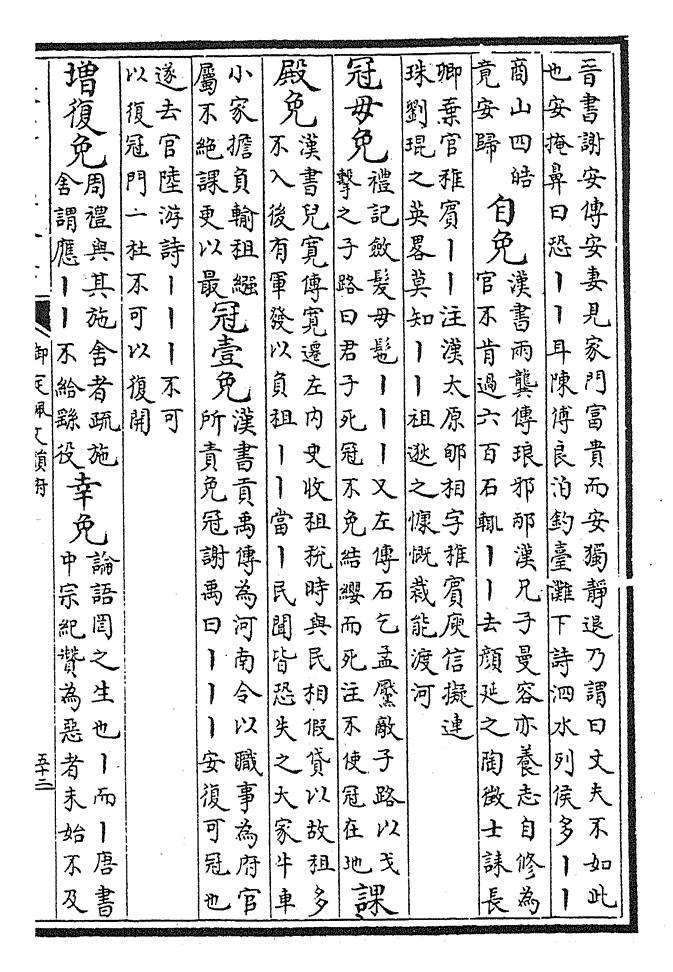 晉書謝安傳安妻見家門富貴而安獨靜退乃謂曰丈夫不如此
也安掩鼻曰恐丨丨耳陳傅良泊釣臺灘下詩泗水列侯多丨丨
商山四皓
竟安歸
自免
漢書兩龔傳琅邪邴漢兄子曼容亦養志自修為
官不肯過六百石輒丨丨去顏延之陶徵士誄長
卿棄官稚賓丨丨注漢太原郇相字稚賓庾信擬連
珠劉琨之英畧莫知丨丨祖逖之慷慨裁能渡河
冠毋免
禮記斂髮毋髢丨丨丨又左傳石乞孟黶敵子路以戈
擊之子路曰君子死冠不免結纓而死注不使冠在地
課
殿免
漢書兒寛傳寛遷左内史收租稅時與民相假貸以故租多
不入後有軍發以負租丨丨當丨民聞皆恐失之大家牛車
小家擔負輸租繈
屬不絶課更以最
冠壹免
漢書貢禹傳為河南令以職事為府官
所責免冠謝禹曰丨丨丨安復可冠也
遂去官陸游詩丨丨丨不可
以復冠門一杜不可以復開
増復免
周禮與其施舍者疏施
舍謂應丨丨不給繇役
幸免
論語罔之生也丨而丨唐書
中宗紀贊為惡者未始不及
御定佩文韻府
五十二